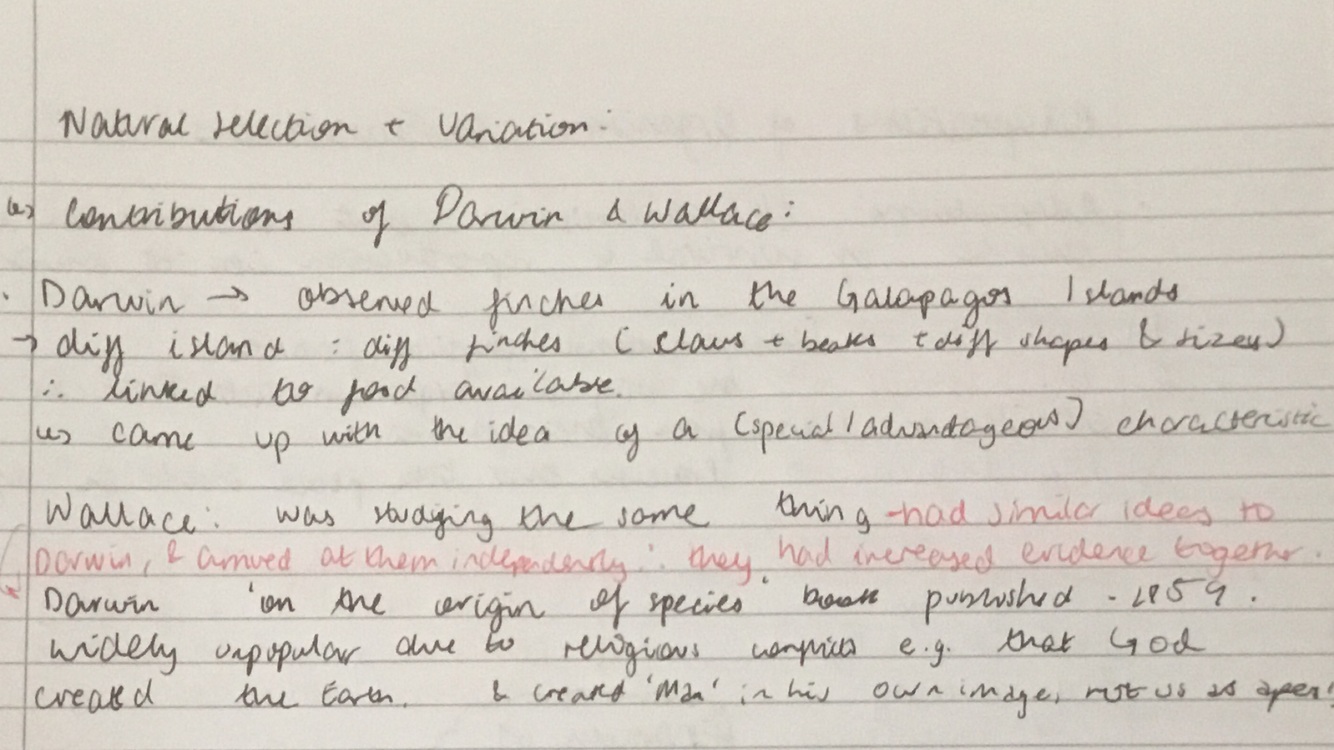 Natural selection + variation:
↳ Contributions of Darwin & Wallace:
· Darwin → observed finches in the Galapagos Islands
→ diff island : diff finches (claws + beaks + diff shapes & sizes)
∴ linked to food available.
↳ came up with the idea of a (special / advantageous) characteristic
Wallace: was studying the same thing - had similar ideas to
Darwin, & arrived at them independently ∴ they had increased evidence together.
* Darwin 'on the origin of species' book published - 1859.
widely unpopular due to religious conflicts e.g. that God
created the Earth. & created 'Man' in his own image, not us as apes!